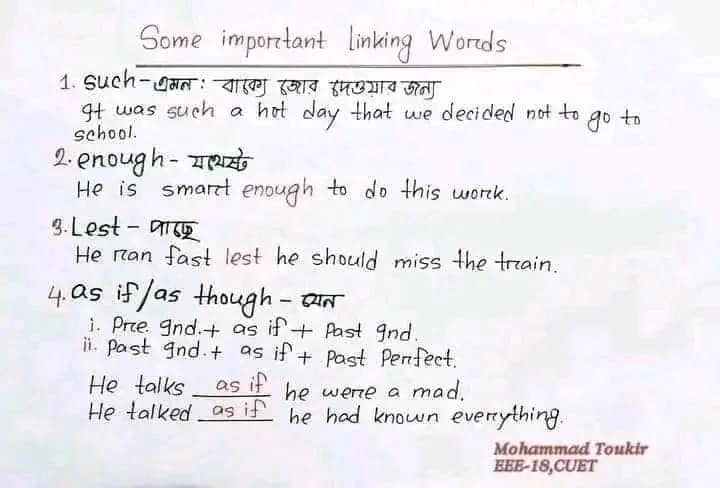 Some important linking Words
1. such - এমন : বাক্যে জোর দেওয়ার জন্য
It was such a hot day that we decided not to go to
school.
2. enough - যথেষ্ট
He is smart enough to do this work.
3. Lest - পাছে
He ran fast lest he should miss the train.
4. as if/as though - যেন
i. Pre. Ind. + as if + Past Ind.
ii. Past Ind. + as if + Past Perfect.
He talks as if he were a mad.
He talked as if he had known everything.
Mohammad Toukir
EEE-18,CUET